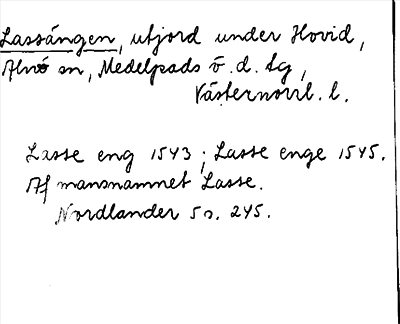 Lassängen, utjord under Hovid,
Alnö sn, Medelpads ö. d. tg,
Västernorrl. l.
Lasse eng 1543; Lasse enge 1545.
Af mansnamnet Lasse.
Nordlander 5 s. 245.